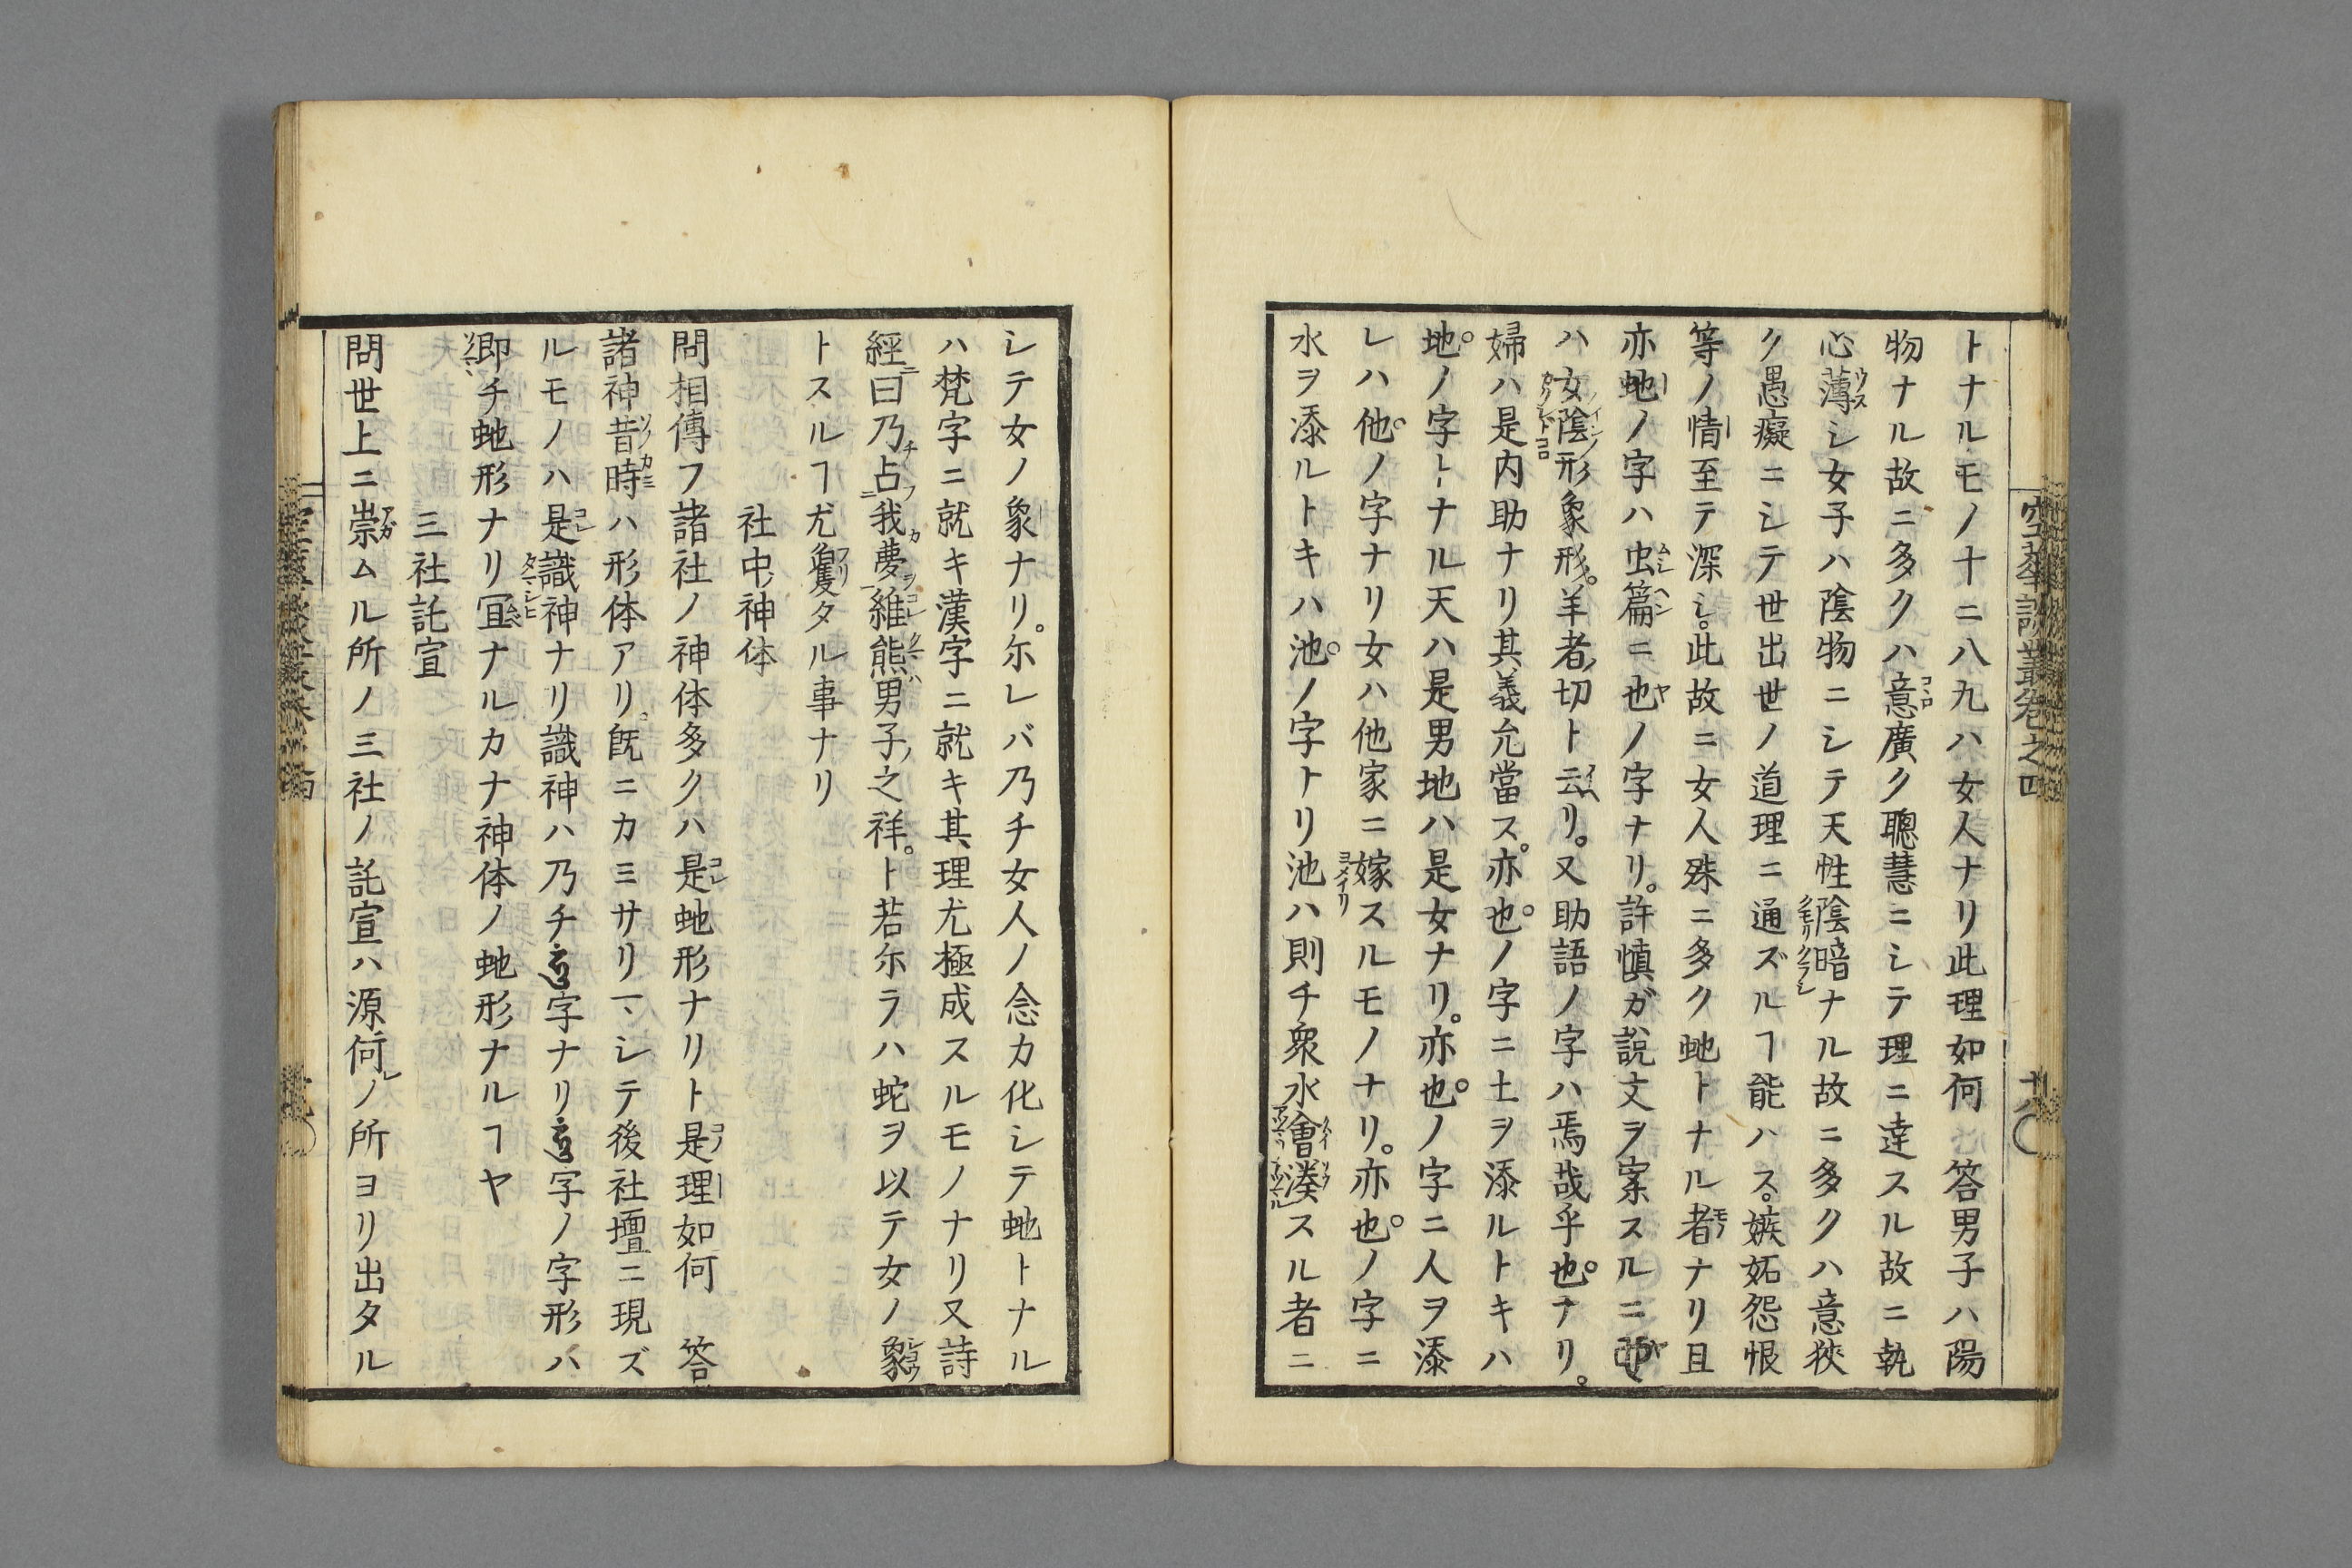 空華談叢卷之四
十八
トナルモノ十ニ八九ハ女人ナリ此理如何 答男子ハ陽
物ナル故ニ多クハ意廣ク聰慧ニシテ理ニ達スル故ニ執
心薄シ女子ハ陰物ニシテ天性陰暗ナル故ニ多クハ意狹
ク愚癡ニシテ世出世ノ道理ニ通ズルヿ能ハス。嫉妬怨恨
等ノ情至テ深シ。此故ニ女人殊ニ多ク虵トナル者ナリ且
亦虵ノ字ハ虫篇ニ也ノ字ナリ。許慎ガ説文ヲ案スルニ
ハ女陰形象形。羊者ノ切ト云リ。又助語ノ字ハ焉哉乎也ナリ。
婦ハ是内助ナリ其義允當ス。亦也ノ字ニ土ヲ添ルトキハ
地ノ字トナル天ハ是男地ハ是女ナリ。亦也ノ字ニ人ヲ添
レハ他ノ字ナリ女ハ他家ニ嫁スルモノナリ。亦也ノ字ニ
水ヲ添ルトキハ池ノ字トリ池ハ則チ衆水會湊スル者ニ
シテ女ノ象ナリ。尓レバ乃チ女人ノ念カ化シテ虵トナル
ハ梵字ニ就キ漢字ニ就キ其理尤極成スルモノナリ又詩
經ニ曰乃チ占フ我カ夢ヲ維熊ハ男子ノ之祥。ト若尓ラハ蛇ヲ以テ女ノ象
トスルヿ尤舊タル事ナリ
社中神体
問相傳フ諸社ノ神体多クハ是虵形ナリト是理如何 答
諸神昔時ハ形体アリ。既ニカミサリマシテ後社壇ニ現ズ
ルモノハ是識神ナリ識神ハ乃チ字ナリ字ノ字形ハ
即チ虵形ナリ冝ナルカナ神体ノ虵形ナルヿヤ
三社託宣
問世上ニ崇ムル所ノ三社ノ託宣ハ源何レノ所ヨリ出タル